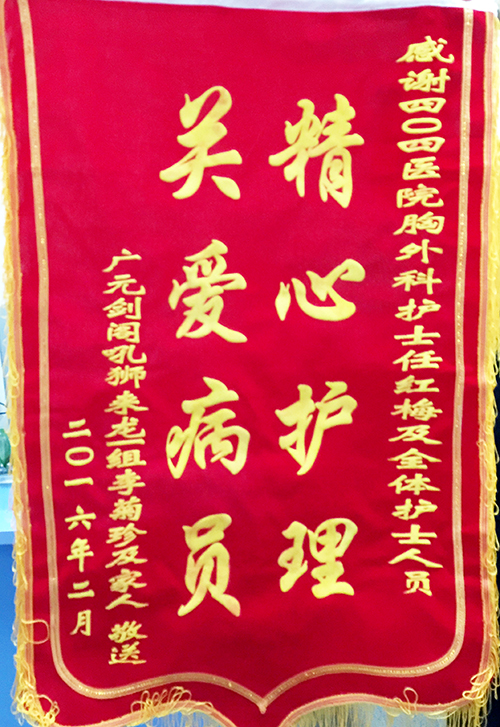 感谢四〇四医院胸外科护士任红梅及全体护士人员
精心护理
关爱病员
广元剑阁吼狮来龙一组李菊珍及家人 敬送
二〇一六年二月